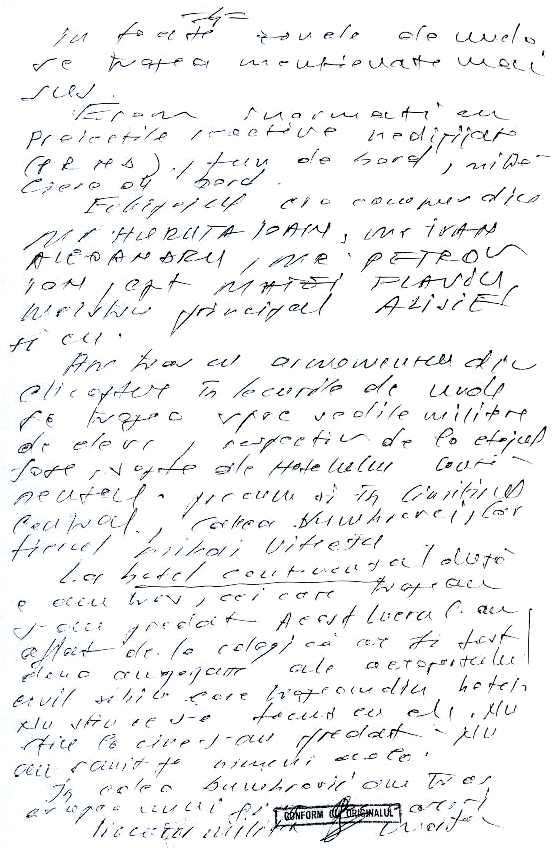 -4-
în toate zonele de unde
se trăgea menționate mai
sus.
Eram înarmați cu
proiectile reactive nedirijate
(PRND), tun de bord,
bord.
Echipajul era compus din
Mr HURUTA IOAN, mr IVAN
ALEXANDRU, MR PETROV
ION, cpt MATEI FLAVIU,
Maistru principal
și eu.
Am tras cu armamentul din
elicoptere în locurile de unde
se trăgea spre sediile militare
de elevi, respectiv de la etajul
șase, șapte ale Hotelului Conti-
nental precum și în Cimitirul
Central, Calea Dumbrăvii, Car-
tierul Mihai Viteazu
La hotel continental după
ce am tras, cei care trăgeau
s-au predat. Acest lucru l-am
aflat de la colegi că ar fi fost
două angajate ale aeroportului
civil Sibiu care trăgeau din hotel.
Nu știu ce s-a făcut cu ei. Nu
știu la cine s-au predat. Nu
au rănit pe nimeni acolo.
În calea Dumbrăvii am tras
asupra unui
liceului militar
CONFORM CU ORIGINALUL